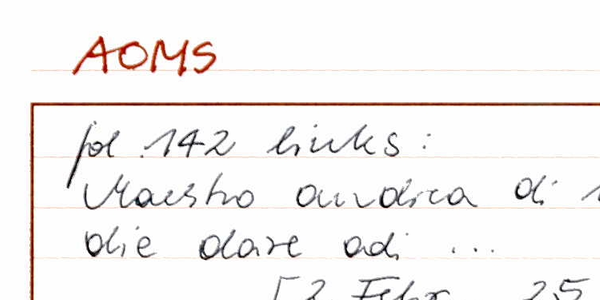 AOMS
fol. 142 links:
Maestro andrea di
die dare adi ...
[2. Febr. 25